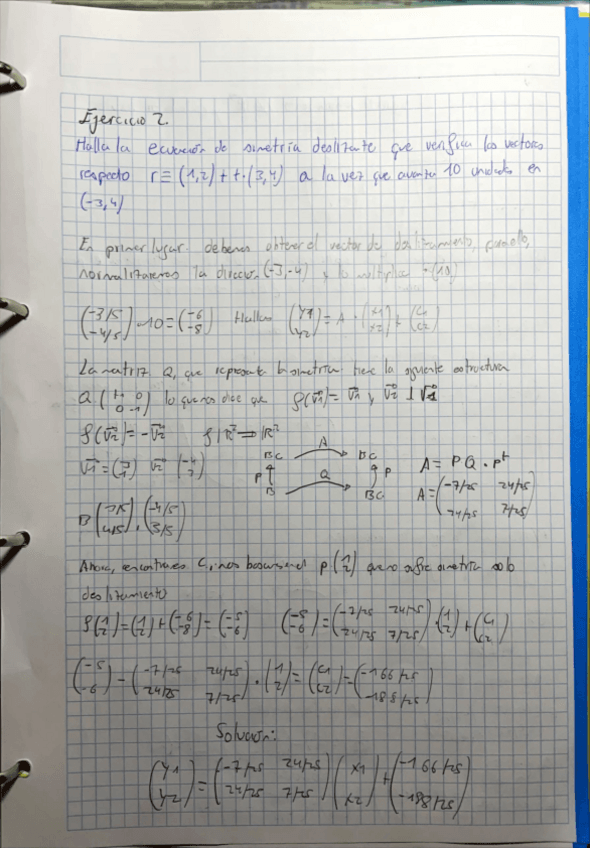 Ejercicio 2.
Halla la ecuación de simetría deslizante que verifica los vectores
respecto r≡(1,2)+t·(3,4) a la vez que avanza 10 unidades en
(-3,4)
En primer lugar debemos obtener el vector de deslizamiento, para ello,
normalizaremos la dirección (-3,-4) y lo multiplica ·(10)
(-3/5 -4/5)·10=(-6 -8) Hallar (y1 y2)=A·(x1 x2)+(c1 c2)
La matriz Q, que representa la simetría tiene la siguiente estructura
Q(1 0 0 -1) lo que nos dice que f(v1)=v1 y v2⊥v1
f(v2)=-v2 f:R²→R²
BC A BC
v2 P Q P A=PQ·Pt
B BC A=(-7/25 24/25 24/25 7/25)
B(3/5 4/5),(-4/5 3/5)
Ahora, encontramos C, nos basamos en el p(1 2) que no sufre simetría solo
deslizamiento
f(1 2)=(1 2)+(-6 -8)=(-5 -6) (-5 -6)=(-7/25 24/25 24/25 7/25)·(1 2)+(c1 c2)
(-5 -6)-(-7/25 24/25 24/25 7/25)·(1 2)=(c1 c2)=(-166/25 -188/25)
Solución:
(y1 y2)=(-7/25 24/25 24/25 7/25)(x1 x2)+(-166/25 -188/25)